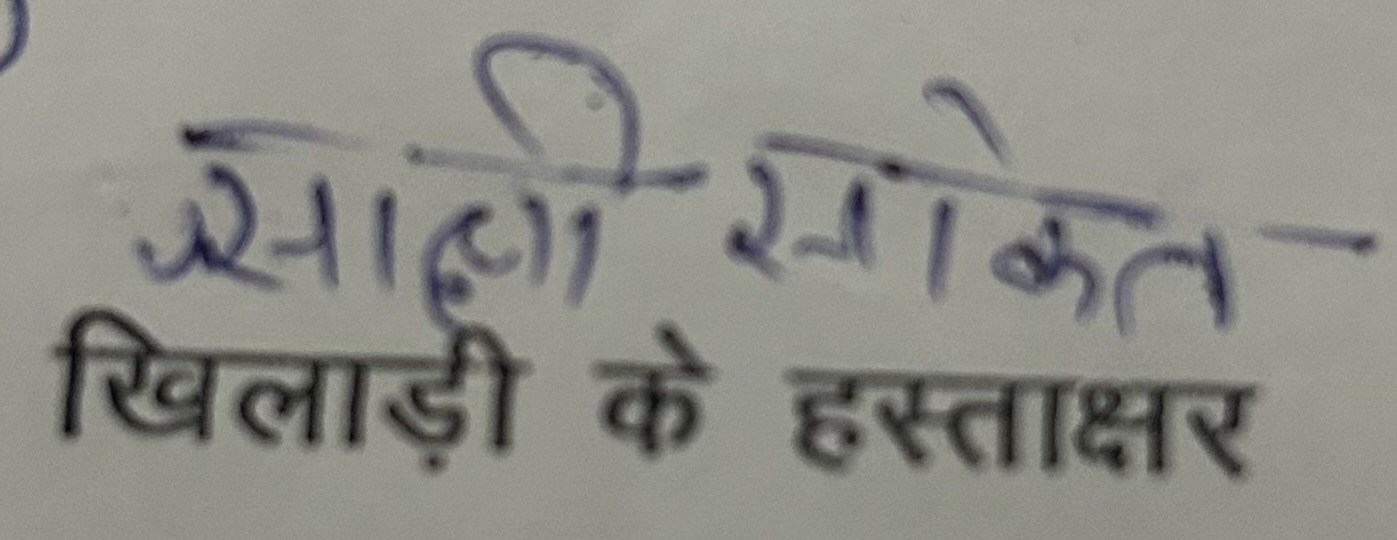 साक्षी साकेत
खिलाड़ी के हस्ताक्षर